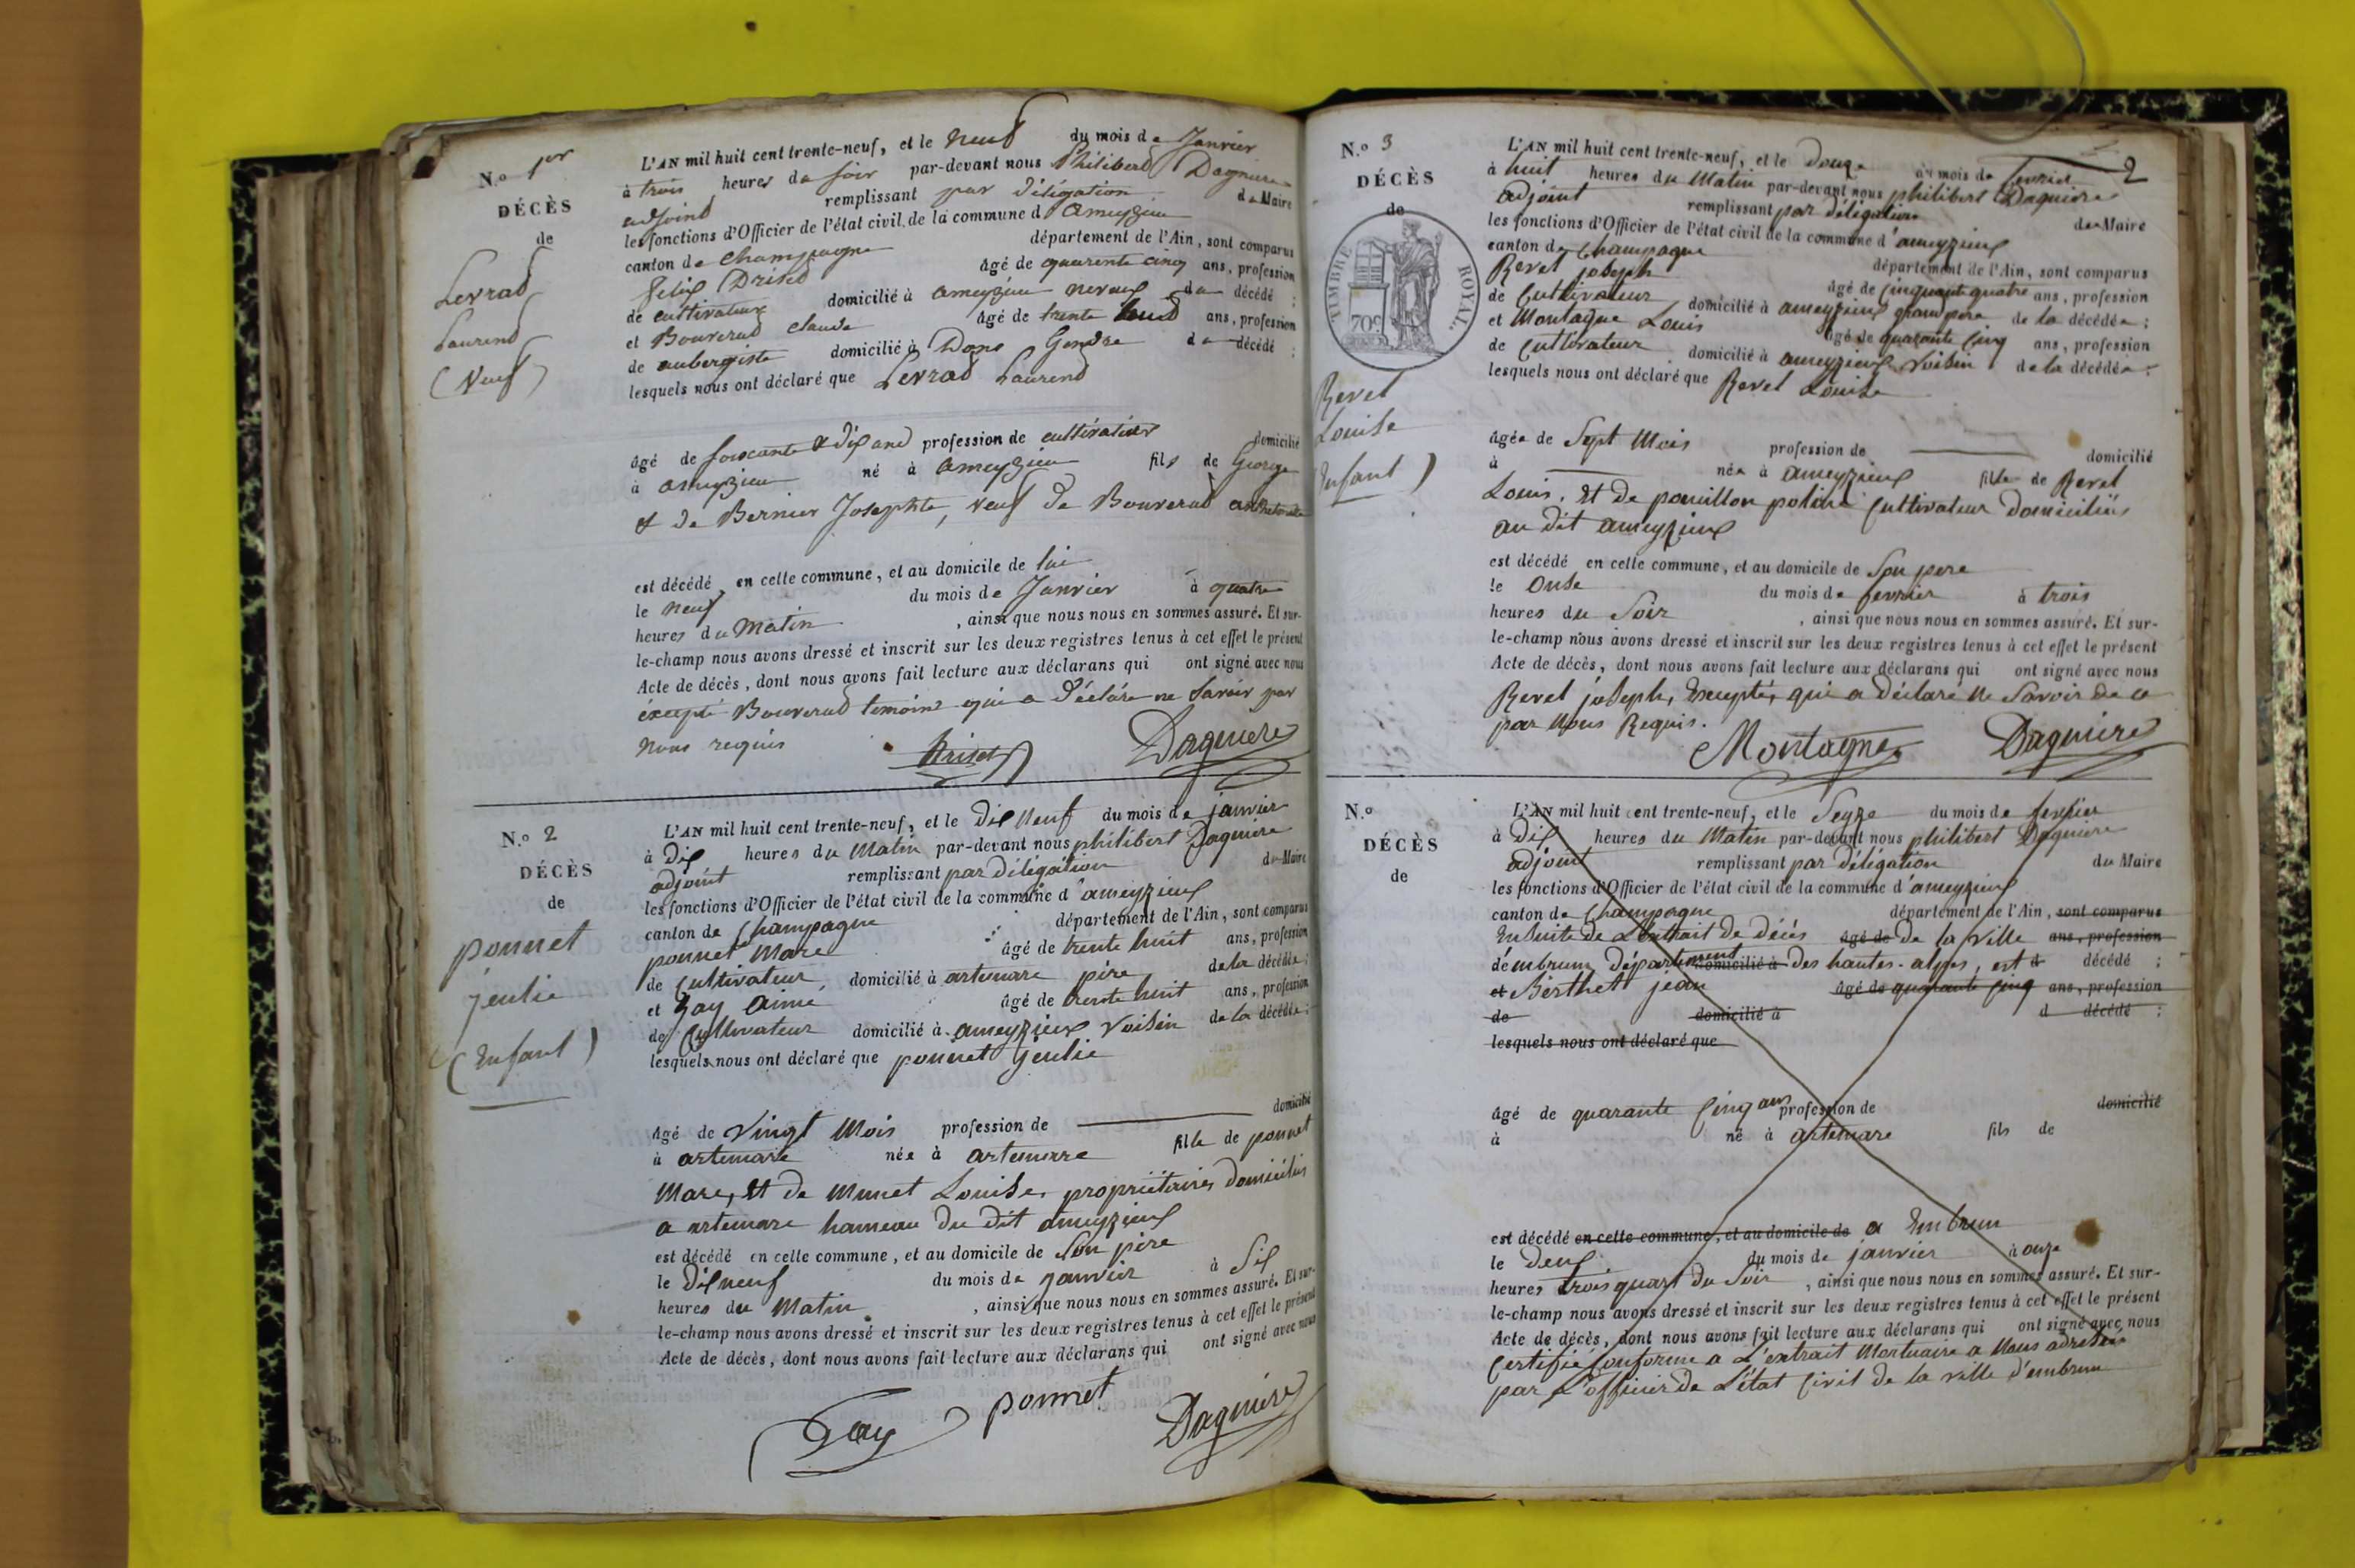 N.º 1er
DÉCÈS
de
Levrad
Laurend
(Veuf)
L'AN mil huit cent trente-neuf, et le neuf du mois de Janvier
à trois heures du soir par-devant nous Philiberd Daguiere
adjoind remplissant par délégation du Maire
les fonctions d'Officier de l'état civil de la commune d'ameyzieu
canton de Champagne département de l'Ain, sont comparus
felix Drised âgé de quarente cinq ans, profession
de cultivateur domicilié à ameyzieu neveux du décédé ;
et Bouverad claude âgé de trente huit ans, profession
de aubergiste domicilié à Dons Gendre du décédé ;
lesquels nous ont déclaré que Levrad Laurend
âgé de soixcante & dix and profession de cultivateur domicilié
à ameyzieu né à ameyzieu fils de George
& de Bernier Josephte, veuf de Bouverad
est décédé en celle commune, et au domicile de lui
le neuf du mois de Janvier à quatre
heures du matin , ainsi que nous nous en sommes assuré. Et sur-
le-champ nous avons dressé et inscrit sur les deux registres tenus à cet effet le présent
Acte de décès, dont nous avons fait lecture aux déclarans qui ont signé avec nous
éxcepté Bouverad temoins qui a déclare ne savoir par
nous requis
Driset Daguiere
N.º 2
DÉCÈS
de
ponnet
jeulie
(Enfant)
L'AN mil huit cent trente-neuf, et le dix neuf du mois de janvier
à dix heures du Matin par-devant nous philibert Daguiere
adjoint remplissant par délégation du Maire
les fonctions d'Officier de l'état civil de la commune d'ameyzieux
canton de Champagne département de l'Ain, sont comparus
ponnet Marc âgé de trente huit ans, profession
de Cultivateur, domicilié à artemare père de la décédée ;
et Gay aimé âgé de trente huit ans, profession
de Cultivateur domicilié à ameyzieux voisin de la décédée ;
lesquels nous ont déclaré que ponnet jeulie
âgé de vingt Mois profession de domicilié
à artemare née à artemare fille de ponnet
Marc, et de Munet Louise, propriétaires domiciliés
a artemare hameau du dit ameyzieux
est décédé en celle commune, et au domicile de Son père
le dix neuf du mois de janvier à Six
heures du Matin , ainsi que nous nous en sommes assuré. Et sur-
le-champ nous avons dressé et inscrit sur les deux registres tenus à cet effet le présent
Acte de décès, dont nous avons fait lecture aux déclarans qui ont signé avec nous
Gay ponnet Daguiere
2
N.º 3
DÉCÈS
de
TIMBRE ROYAL.
70c
Revel
Louise
Enfant)
L'AN mil huit cent trente-neuf, et le douze du mois de fevrier
à huit heures du Matin par-devant nous philibert Daguiere
adjoint remplissant par délégation du Maire
les fonctions d'Officier de l'état civil de la commune d'ameyzieux
canton de Champagne département de l'Ain, sont comparus
Revel joseph âgé de Cinquante quatre ans, profession
de Cultivateur, domicilié à ameyzieux grand père de la décédée ;
et Montagne Louis âgé de quarante Cinq ans, profession
de Cultivateur domicilié à ameyzieux voisin de la décédée ;
lesquels nous ont déclaré que Revel Louise
âgée de Sept Mois profession de domicilié
à née à ameyzieux fille de Revel
Louis, et de pouillon Cultivateur domiciliés
au dit ameyzieux
est décédé en celle commune, et au domicile de Son pere
le onse du mois de fevrier à trois
heures du Soir , ainsi que nous nous en sommes assuré. Et sur-
le-champ nous avons dressé et inscrit sur les deux registres tenus à cet effet le présent
Acte de décès, dont nous avons fait lecture aux déclarans qui ont signé avec nous
Revel joseph, Excepté, qui a déclaré ne Savoir de ce
par Nous Requis.
Montagne Daguiere
N.º
DÉCÈS
de
L'AN mil huit cent trente-neuf, et le Seyze du mois de fevrier
à dix heures du Matin par-devant nous philibert Daguiere
adjoint remplissant par délégation du Maire
les fonctions d'Officier de l'état civil de la commune d'ameyzieux
canton de Champagne département de l'Ain, sont comparus
Ensuite de L'extrait de décès âgé de de la ville ans, profession
d'embrum, département domicilié à des hautes-alpes, est d décédé ;
et Berthet jean âgé de quarante Cinq ans, profession
de domicilié à d décédé ;
lesquels nous ont déclaré que
âgé de quarante Cinq ans profession de domicilié
à né à artemare fils de
est décédé en celle commune, et au domicile de a Embrun
le deux du mois de janvier à onze
heures trois quart du Soir , ainsi que nous nous en sommes assuré. Et sur-
le-champ nous avons dressé et inscrit sur les deux registres tenus à cet effet le présent
Acte de décès, dont nous avons fait lecture aux déclarans qui ont signé avec nous
Certifié Conforme a L'extrait Mortuaire a Nous adressé
par L'officier de L'état Civil de la ville d'embrun